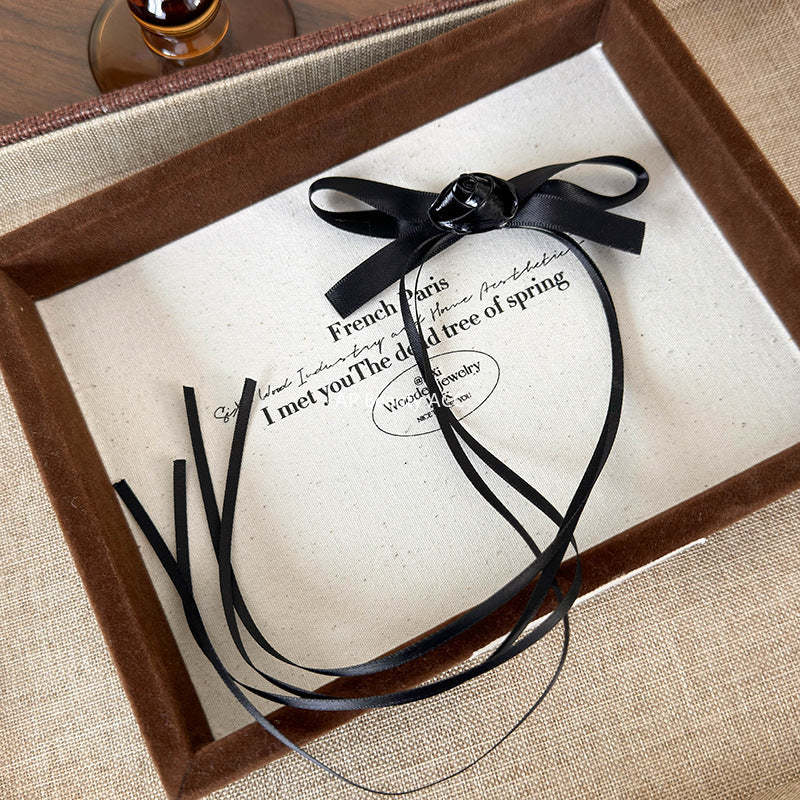 French Paris
Wood Industry and Home Aesthetics
I met youThe dead tree of spring
Wooden jewelry
NICE YOU